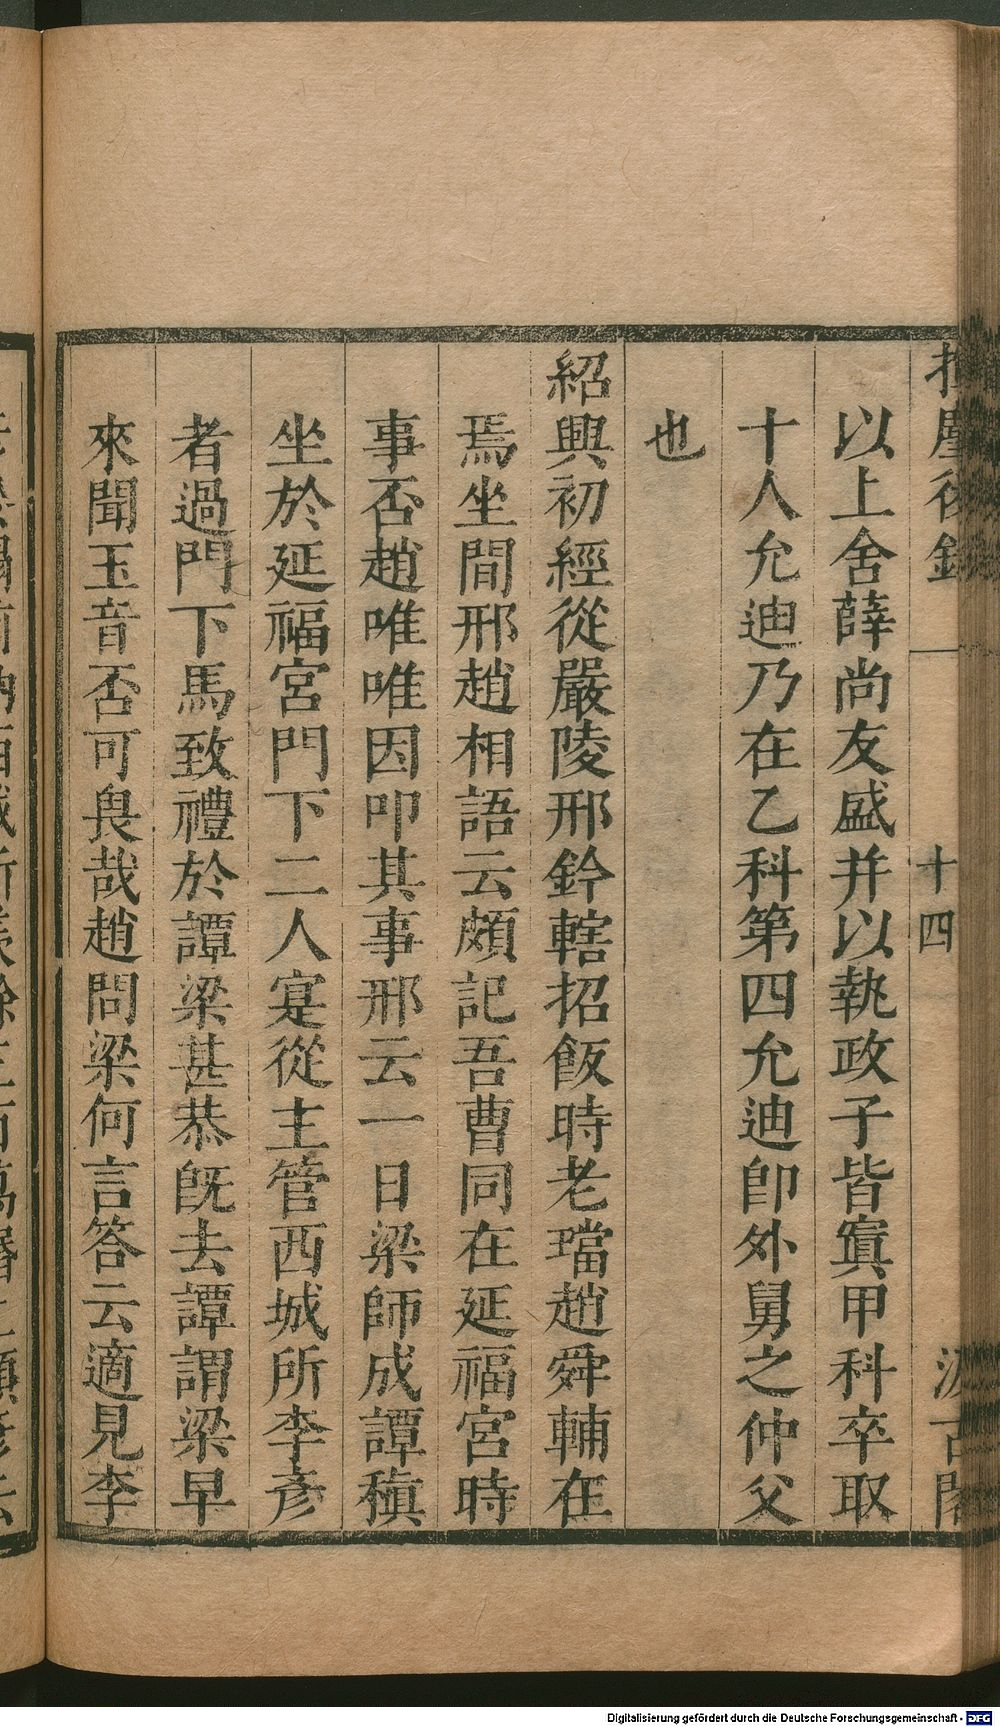 揮麈後錄
十四
汲古閣
以上舍薛尚友盛并以執政子皆寘甲科卒取
十人允迪乃在乙科第四允迪卽外舅之仲父
也
紹興初經從嚴陵邢鈐轄招飯時老璫趙舜輔在
焉坐間邢趙相語云頗記吾曹同在延福宮時
事否趙唯唯因叩其事邢云一日梁師成譚稹
坐於延福宮門下二人寔從主管西城所李彥
者過門下馬致禮於譚梁甚恭旣去譚謂梁早
來聞玉音否可畏哉趙問梁何言答云適見李
Digitalisierung gefördert durch die Deutsche Forschungsgemeinschaft - DFG